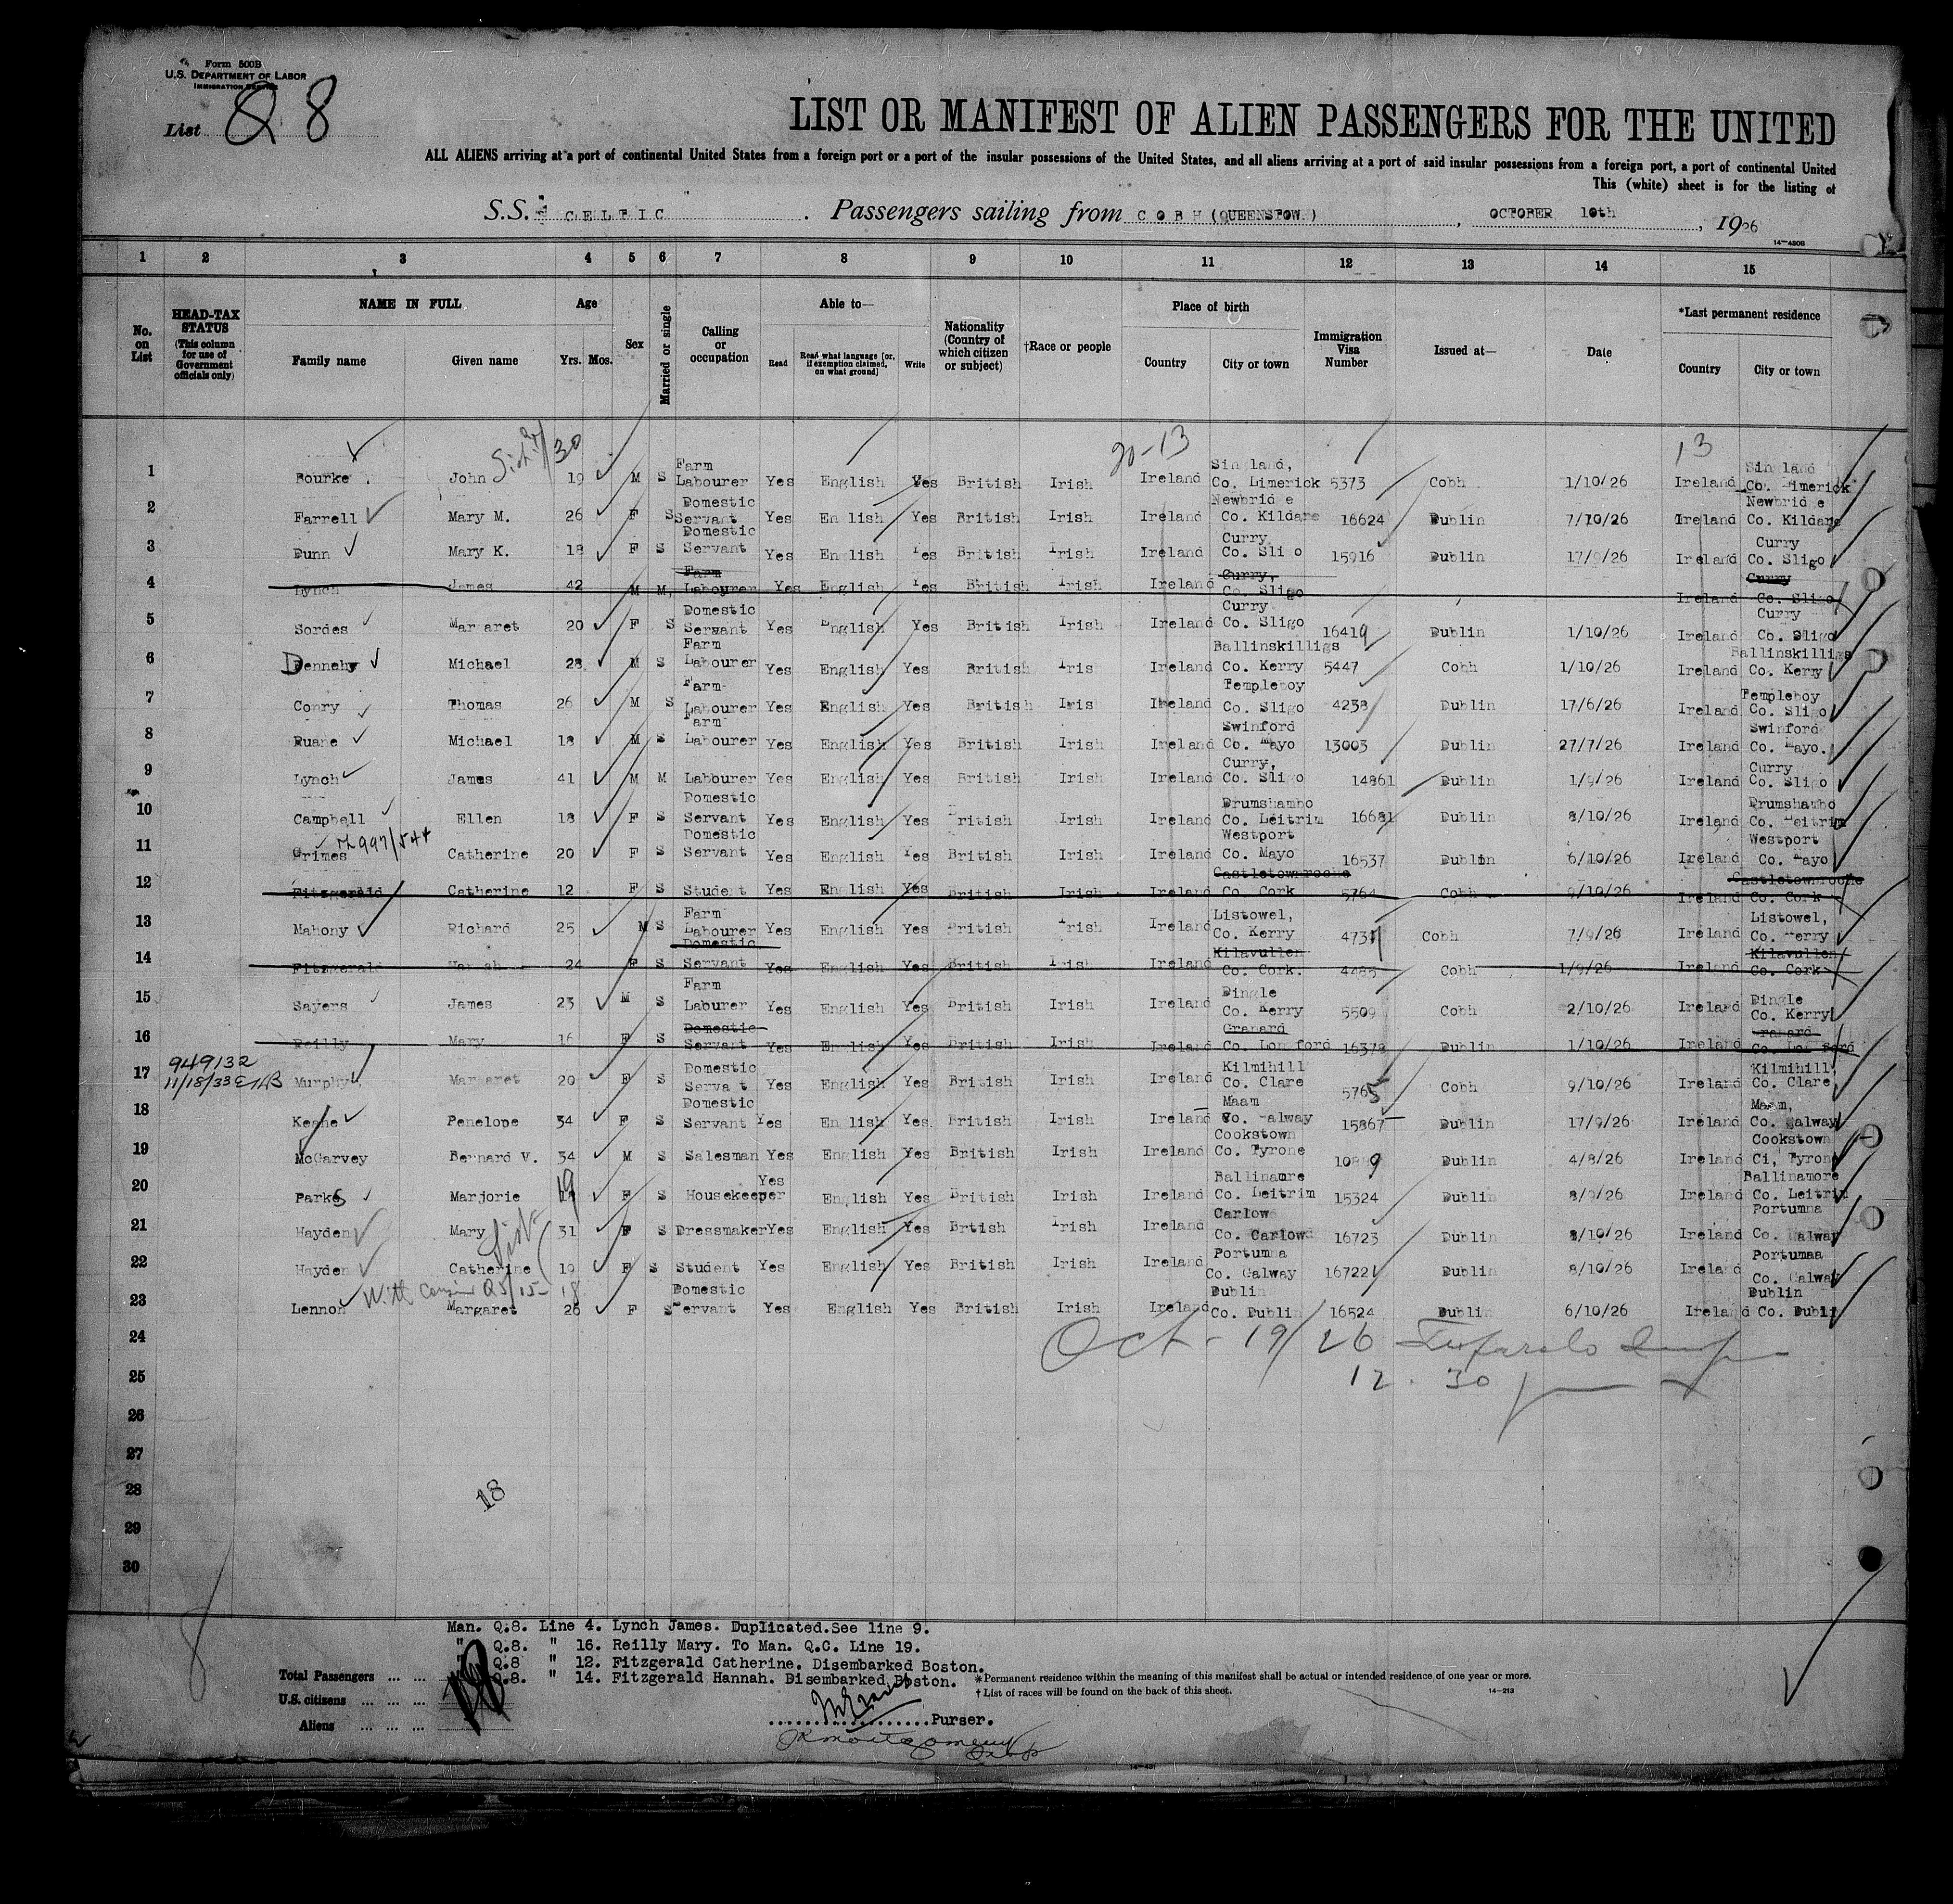 Form 500B
U.S. DEPARTMENT OF LABOR
IMMIGRATION SERVICE
List Q 8
LIST OR MANIFEST OF ALIEN PASSENGERS FOR THE UNITED
ALL ALIENS arriving at a port of continental United States from a foreign port or a port of the insular possessions of the United States, and all aliens arriving at a port of said insular possessions from a foreign port, a port of continental United
This (white) sheet is for the listing of
S.S. CELTIC . Passengers sailing from COBH (QUEENSTOW ) , OCTOBER 10th , 1926
14—430B
1 2 3 4 5 6 7 8 9 10 11 12 13 14 15
No. on List
HEAD-TAX STATUS (This column for use of Government officials only)
NAME IN FULL
Family name Given name
Age
Yrs. Mos.
Sex
Married or single
Calling or occupation
Able to—
Read Read what language [or, if exemption claimed, on what ground] Write
Nationality (Country of which citizen or subject)
†Race or people
Place of birth
Country City or town
Immigration Visa Number
Issued at—
Date
*Last permanent residence
Country City or town
30 20-13 13
1 Bourke John 19 M S Farm Labourer Yes English Yes British Irish Ireland Singland, Co. Limerick 5373 Cobh 1/10/26 Ireland Sin land Co. Limerick
2 Farrell Mary M. 26 F S Domestic Servant Yes En lish Yes British Irish Ireland Newbrid e Co. Kildare 16624 Dublin 7/10/26 Ireland Newbrid e Co. Kildare
3 Dunn Mary K. 18 F S Domestic Servant Yes English Yes British Irish Ireland Curry Co. Sli o 15916 Dublin 17/9/26 Ireland Curry Co. Sligo
4 Lynch James 42 M M, Farm Labourer Yes English Yes British Irish Ireland Curry, Co. Sligo Ireland Curry Co. Sligo
5 Sordes Margaret 20 F S Domestic Servant Yes English Yes British Irish Ireland Curry Co. Sligo 16419 Dublin 1/10/26 Ireland Curry Co. Sligo
6 Dennehy Michael 28 M S Farm Labourer Yes English Yes British Iris Ireland Ballinskilligs Co. Kerry 5447 Cobh 1/10/26 Ireland Ballinskilligs Co. Kerry
7 Conry Thomas 26 M S Farm Labourer Yes English Yes British Iris Ireland Templeboy Co. Sligo 4238 Dublin 17/6/26 Ireland Templeboy Co. Sligo
8 Ruane Michael 18 M S Farm Labourer Yes English Yes British Irish Ireland Swinford Co. Mayo 13003 Dublin 27/7/26 Ireland Swinford Co. Mayo.
9 Lynch James 41 M M Labourer Yes English Yes British Irish Ireland Curry, Co. Sligo 14861 Dublin 1/9/26 Ireland Curry Co. Sligo
10 Campbell Ellen 18 F S Domestic Servant Yes English Yes British Irish Ireland Drumshambo Co. Leitrim 16681 Dublin 8/10/26 Ireland Drumshambo Co. Leitrim
997/544
11 Grimes Catherine 20 F S Domestic Servant Yes English Yes British Irish Ireland Westport Co. Mayo 16537 Dublin 6/10/26 Ireland Westport Co. Mayo
12 Fitzgerald Catherine 12 F S Student Yes English Yes British Irish Ireland Castletownroche Co. Cork 5764 Cobh 9/10/26 Ireland Castletownroche Co. Cork
13 Mahony Richard 25 M S Farm Labourer Yes English Yes British Irish Ireland Listowel, Co. Kerry 4731 Cobh 7/9/26 Ireland Listowel, Co. Kerry
14 Fitzgerald Hannah 24 F S Domestic Servant Yes English Yes British Irish Ireland Kilavullen Co. Cork. 4485 Cobh 1/9/26 Ireland Kilavullen Co. Cork
15 Sayers James 23 M S Farm Laburer Yes English Yes British Irish Ireland Dingle Co. Kerry 5509 Cobh 2/10/26 Ireland Dingle Co. Kerry
16 Reilly Mary 16 F S Domestic Servant Yes English Yes British Irish Ireland Granard Co. Longford 16378 Dublin 1/10/26 Ireland Granard Co. Longford
949132
11/18/33
17 Murphy Margaret 20 F S Domestic Serva t Yes English Yes British Irish Ireland Kilmihill Co. Clare 5765 Cobh 9/10/26 Ireland Kilmihill, Co. Clare
18 Keane Penelope 34 F S Domestic Servant Yes En lish Yes British Irish Ireland Maam Co. Galway 15867 Dublin 17/9/26 Ireland Maam, Co. Galway
19 McGarvey Bernard V. 34 M S Salesman Yes English Yes British Irish Ireland Cookstown Co. Tyrone 10889 Dublin 4/8/26 Ireland Cookstown Ci, Tyrone
20 Parks Marjorie 19 F S Housekeeper Yes English Yes British Irish Ireland Ballinamre Co. Leitrim 15324 Dublin 8/9/26 Ireland Ballinamore Co. Leitrim
21 Hayden Mary 31 F S Dressmaker Yes English Yes Brtish Irish Ireland Carlow Co. Carlow 16723 Dublin 8/10/26 Ireland Portumna Co. Galway
22 Hayden Catherine 19 F S Student Yes English Yes British Irish Ireland Portumna Co. Galway 16722 Dublin 8/10/26 Ireland Portumaa Co. Galway
With Cousin Q5/15- 18
23 Lennon Margaret 26 F S Domestic Servant Yes English Yes British Irish Ireland Dublin Co. Dublin 16524 Dublin 6/10/26 Ireland Dublin Co. Dublin
24 Oct - 19/26
25 12.30 pm
26
27
28
18
29
30
Man. Q.8. Line 4. Lynch James. Duplicated.See line 9.
" Q.8. " 16. Reilly Mary. To Man. Q.C. Line 19.
" Q.8 " 12. Fitzgerald Catherine. Disembarked Boston.
Q.8. " 14. Fitzgerald Hannah. Disembarked Boston.
Total Passengers
U.S. citizens
Aliens
*Permanent residence within the meaning of this manifest shall be actual or intended residence of one year or more.
†List of races will be found on the back of this sheet.
14—213
Purser.